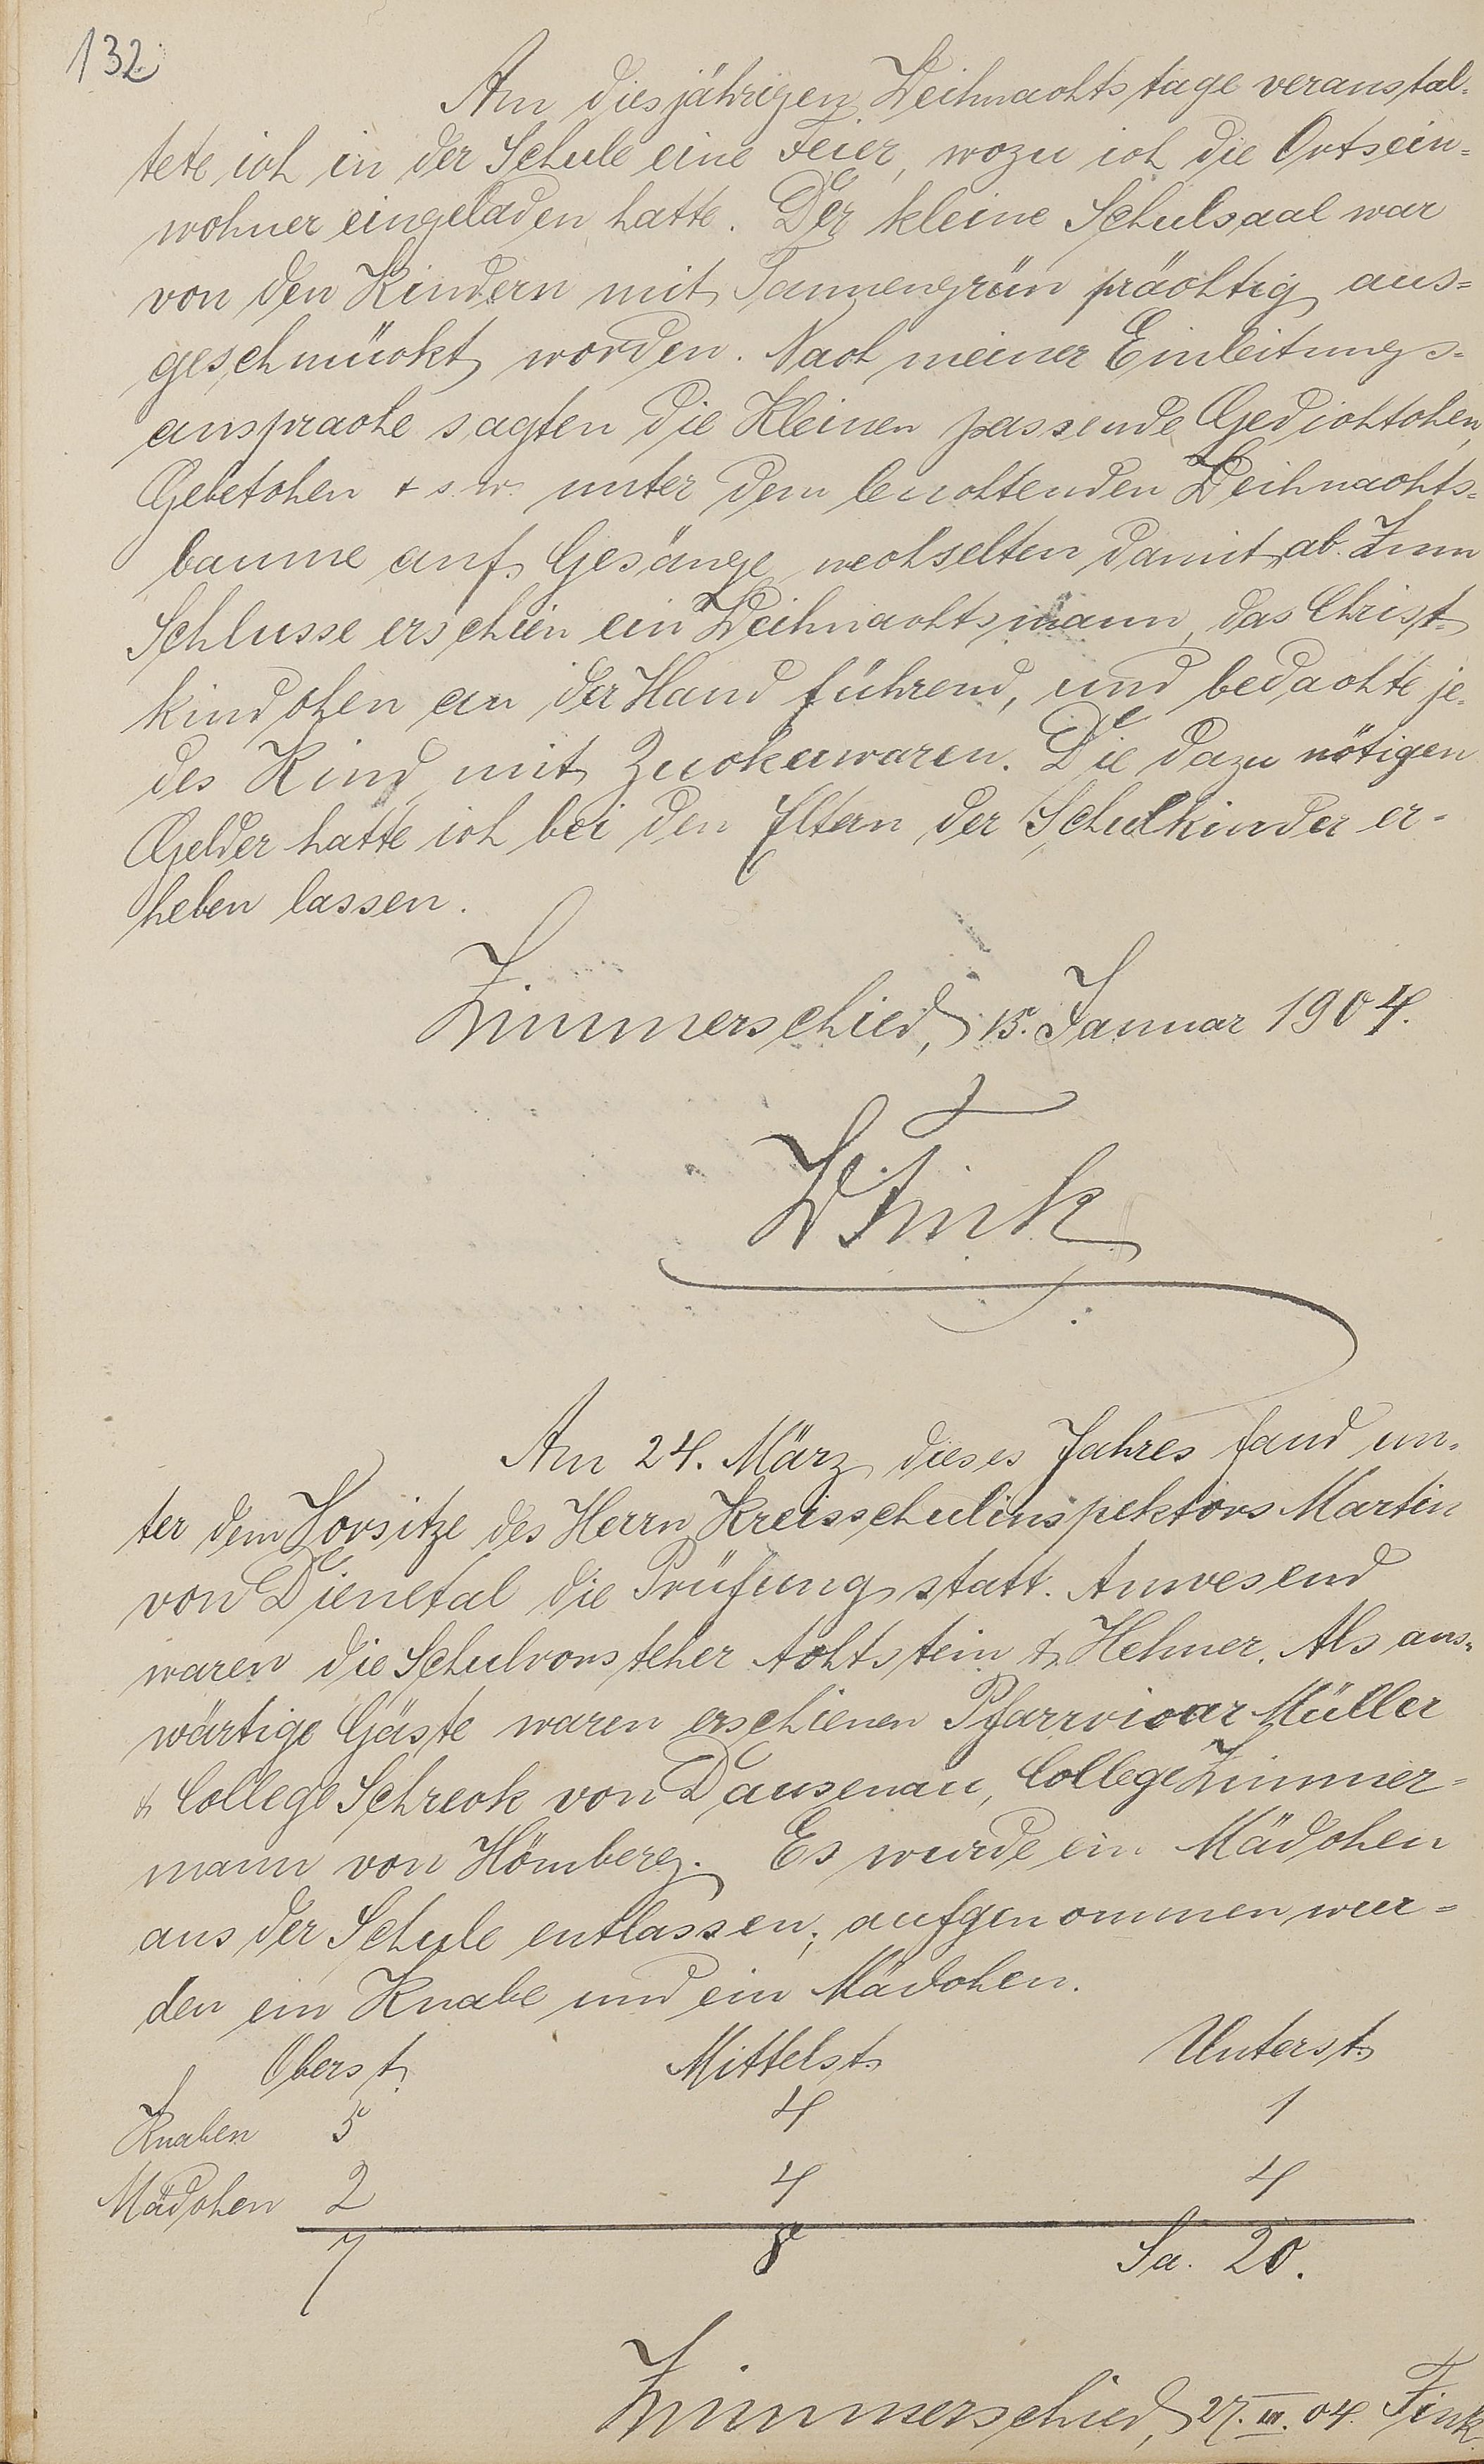 132
Am diesjährigen Weihnachtstage veranstal-
tete ich in der Schule eine Feier, wozu ich die Ortsein=
wohner eingeladen hatte. Der kleine Schulsaal war
von den Kindern mit Tannengrün prächtig aus=
geschmückt worden. Nach meiner Einleitungs=
ansprache sagten die Kleinen passende Gedichtchen,
Gebetchen + s. w. unter dem leuchtenden Weihnachts=
baume auf. Gesänge wechselten damit ab. Zum
Schlusse erschien ein Weihnachtsmann, das Christ-
kindchen an der Hand führend, und bedachte je-
des Kind mit Zuckerwaren. Die dazu nötigen
Gelder hatte ich bei den Eltern der Schulkinder er-
heben lassen.
Zimmerschied, 15. Januar 1904.
W Fink
Am 24. März dieses Jahres fand un-
ter dem Vorsitze des Herrn Kreisschulinspektors Martin
von Dienetal die Prüfung statt. Anwesend
waren die Schulvorsteher Achtstein & Hehner. Als aus-
wärtige Gäste waren erschienen Pfarrvicar Müller
& College Schreck von Dausenau, College Zimmer=
mann von Hömberg. Es wurde ein Mädchen
aus der Schule entlassen; aufgenommen wur=
den ein Knabe und ein Mädchen.
Oberst. Mittelst. Unterst.
Knaben 5 4 1
Mädchen 2 4 4
7 8 Sa. 20.
Zimmerschied, 27. III. 04. Fink.